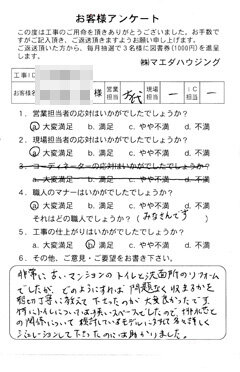 お客様アンケート
この度は工事のご用命を頂き有りがとうございました。お手数で
すがご記入頂き、ご返送頂きますようお願い申し上げます。
ご返送頂いた方から、毎月抽選で3名様に図書券(1000円)を進呈
します。
㈱マエダハウジング
工事
お客様名 様 営業担当 現場担当 ー IC担当 ー
1. 営業担当者の応対はいかがでしたでしょうか？
a.大変満足 b.満足 c.やや不満 d.不満
2. 現場担当者の応対はいかがでしたでしょうか？
a.大変満足 b.満足 c.やや不満 d.不満
3. コーディネーターの応対はいかがでしたでしょうか？
a.大変満足 b.満足 c.やや不満 d.不満
4. 職人のマナーはいかがでしたでしょうか？
a.大変満足 b.満足 c.やや不満 d.不満
それはどの職人でしょうか？（みなさんです）
5. 工事の仕上がりはいかがでしたでしょうか？
a.大変満足 b.満足 c.やや不満 d.不満
6. その他、ご意見・ご要望をお書き下さい。
非常に古いマンションのトイレと洗面所のリフォーム
でしたが、どのようにすれば問題なく収まるかを
親切丁寧に教えて下さったのが大変良かったです。
特にトイレについては狭いスペースでしたので、排水芯と
の関係について検討しているモデルにすれば
シミュレーションして下さったのには助かりました。